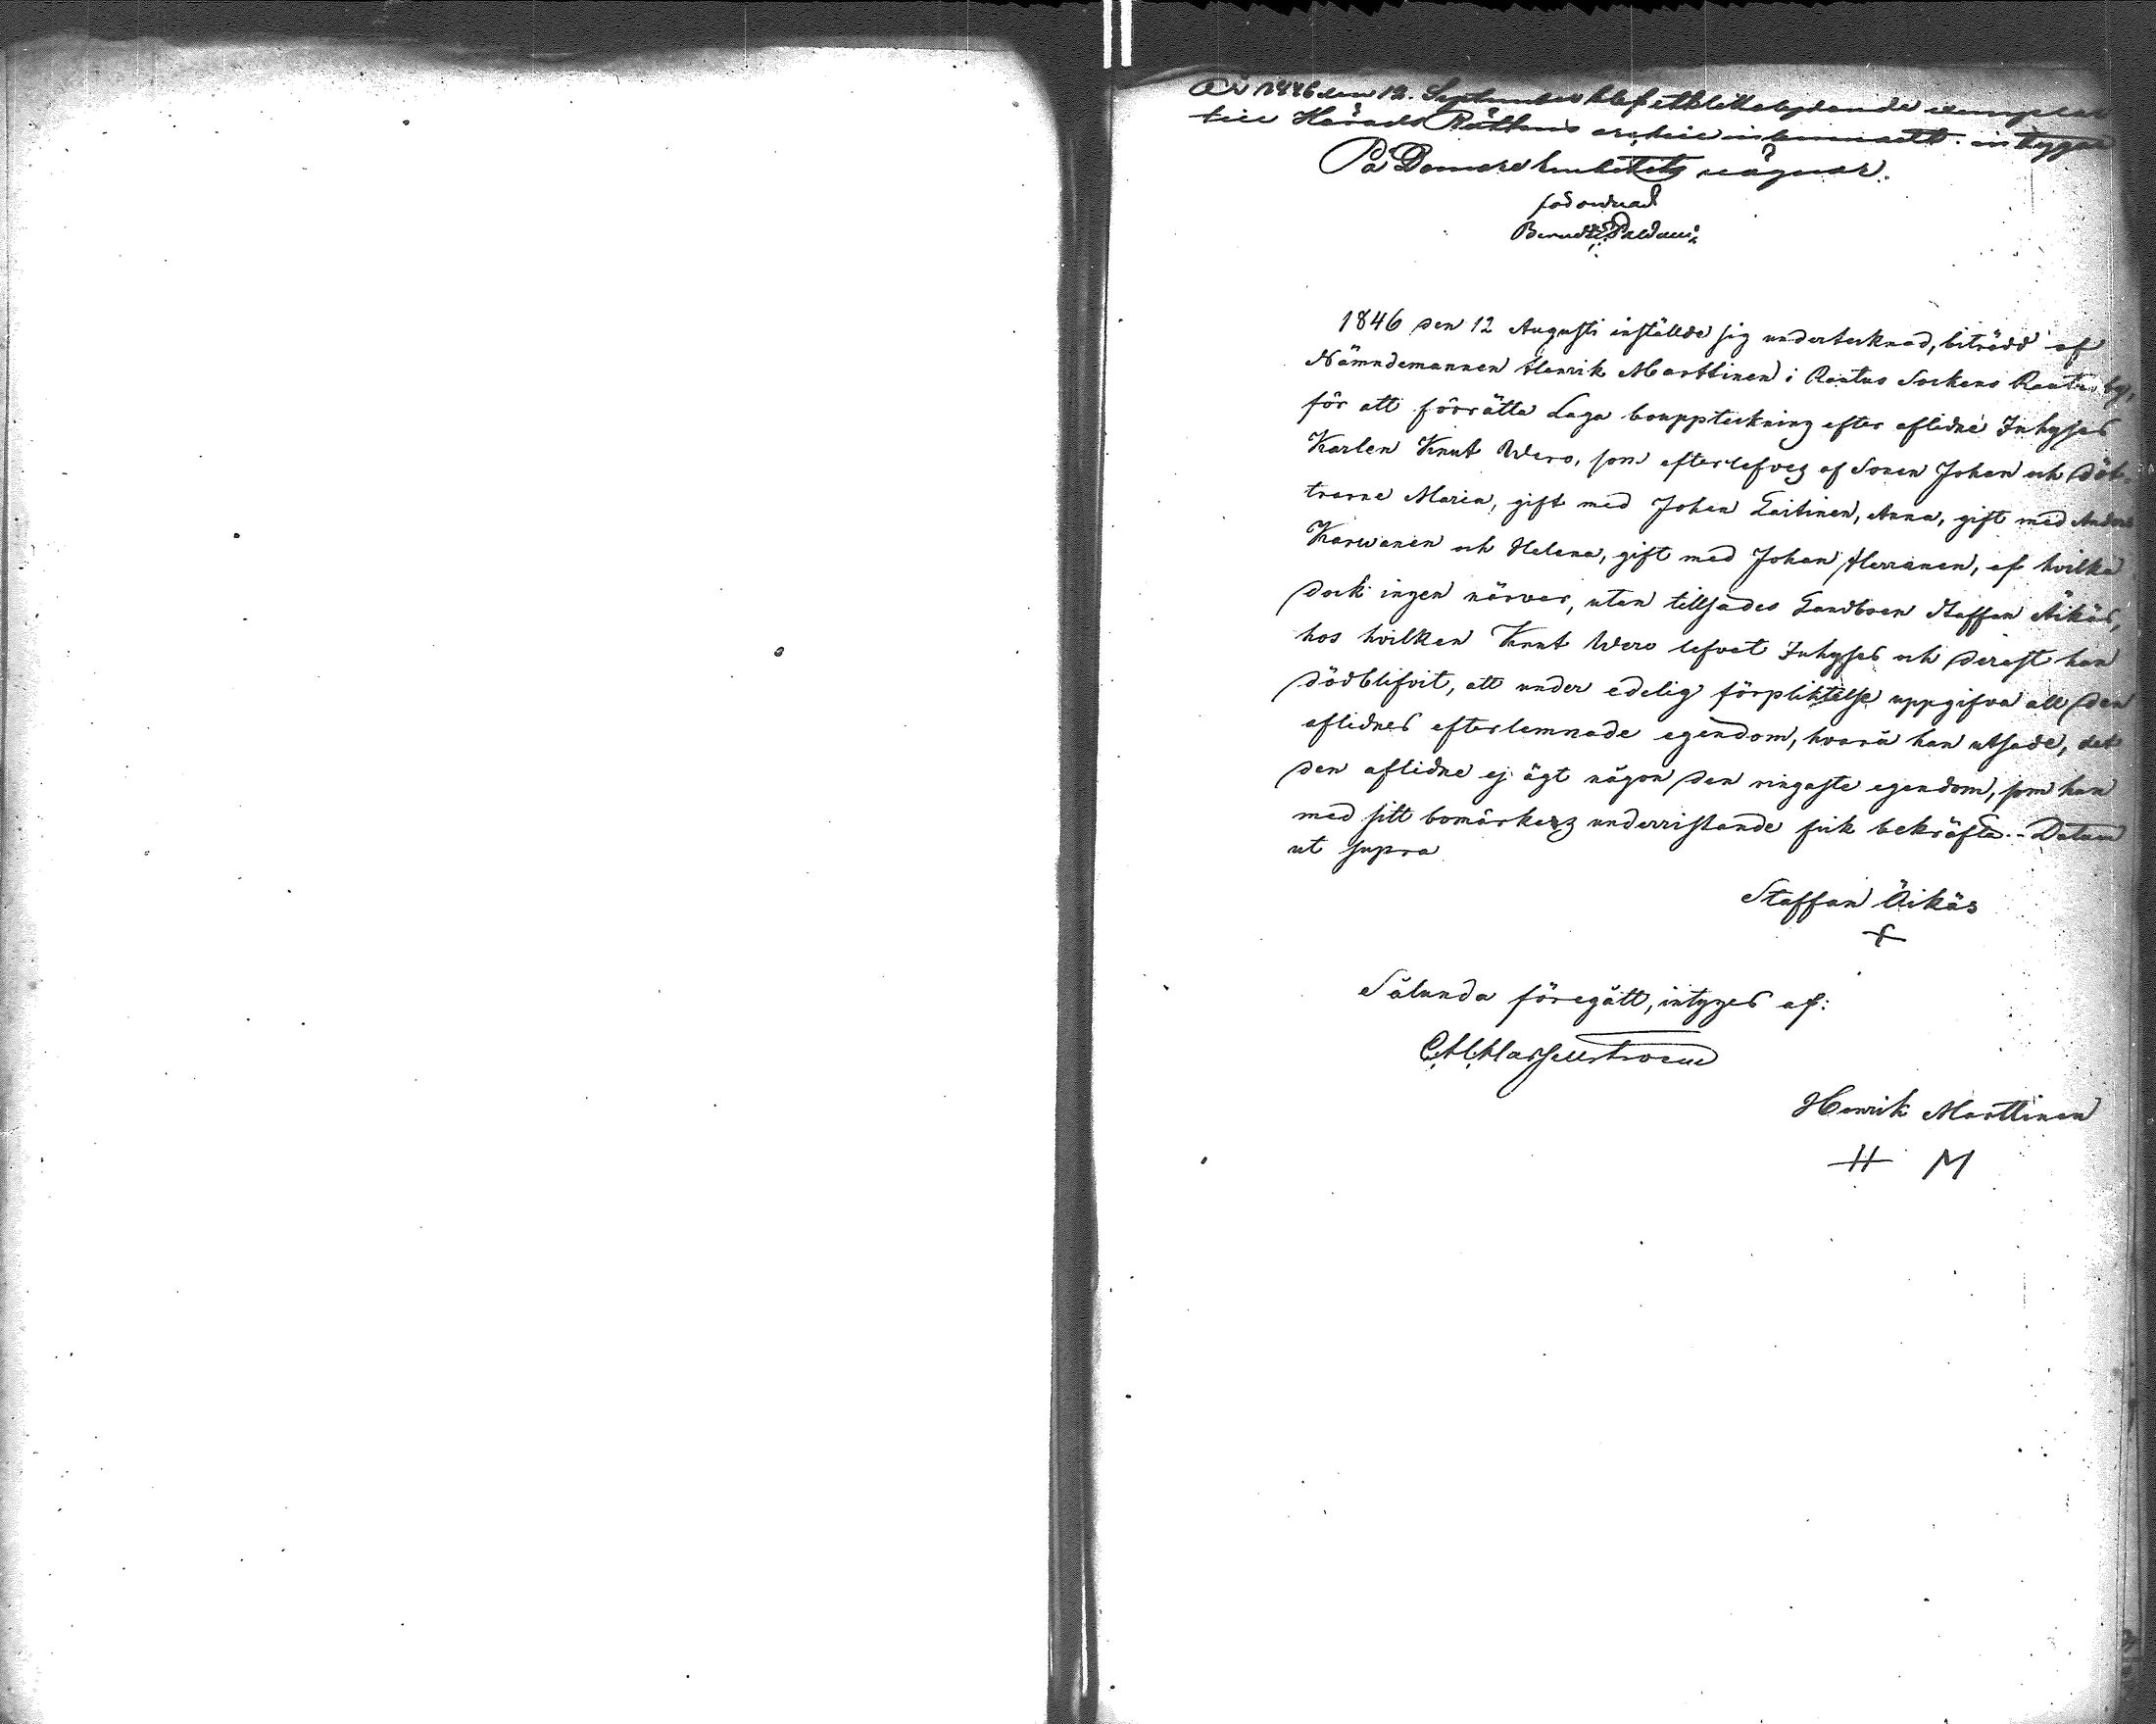 År 1846 den 12. September blef ett lika lydande exemplar
till Härads Rättens archiv inlemnadt: intygar
På Domare Embetets vägnar.
förordnad
1846 den 12 Augusti inställde sig undertecknad, biträdd af
Nämndemannen Henrik Marttinen i Rautus Sockens Rautus by,
för att förrätta Laga bouppteckning efter aflidne Inhyses
Karlen Knut Wero, som efterlefves af Sonen Johan och döt-
trarne Maria, gift med Johan Laitinen, Anna, gift med Anders
Karwanen och Helena, gift med Johan Herranen, af hvilka
dock ingen närvar, utan tillsades Landboen Staffan Äikäs,
hos hvilken Knut Wero lefvat Inhyses och derest han
dödblifvit, att under edelig förpliktelse uppgifva all den
aflidnes efterlemnade egendom, hvarå han utsade, det
den aflidne ej ägt någon den ringaste egendom, som han
med sitt bomärkes underristande fick bekräfta. - Datum
ut supra
Staffan Äikäs
Sålunda föregått, intyges af:
Henrik Marttinen
H M